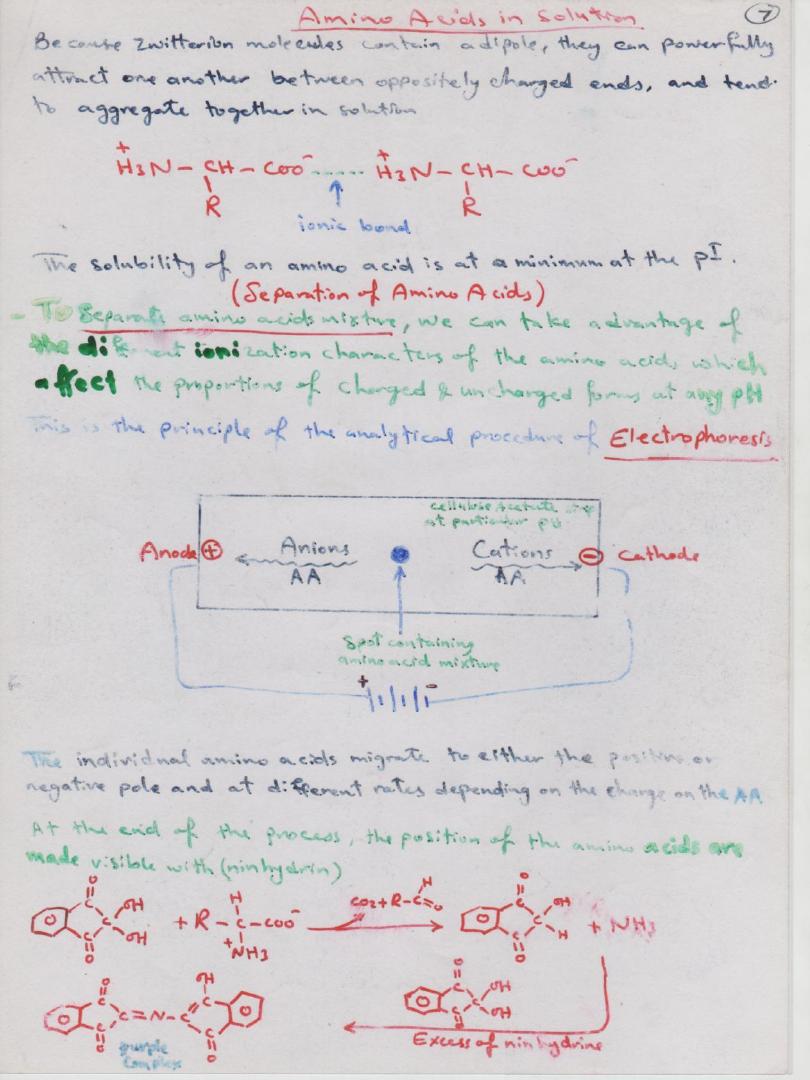 Amino Acids in Solution
7
Because Zwitterion molecules contain a dipole, they can powerfully
attract one another between oppositely charged ends, and tend
to aggregate together in solution
+ +
H3N - CH - COO- ...... H3N - CH - COO-
R R
ionic bond
The solubility of an amino acid is at a minimum at the pI.
(Separation of Amino Acids)
- To Separate amino acids mixture, we can take advantage of
the different ionization characters of the amino acids which
affect the proportions of charged & uncharged forms at any pH
This is the principle of the analytical procedure of Electrophoresis
cellulose acetate strip
at particular pH
Anode + Anions Cations - Cathode
AA AA
Spot containing
amino acid mixture
+ -
The individual amino acids migrate to either the positive or
negative pole and at different rates depending on the charge on the AA
At the end of the process, the position of the amino acids are
made visible with (ninhydrin)
O O
C OH H CO2+R-C H C OH
O C + R - C - COO- O O C + NH3
C OH + C H
O NH3 O
O OH O
C C C OH
O C = N - C O O C
C C C OH
O O O
Excess of ninhydrine
purple
Complex